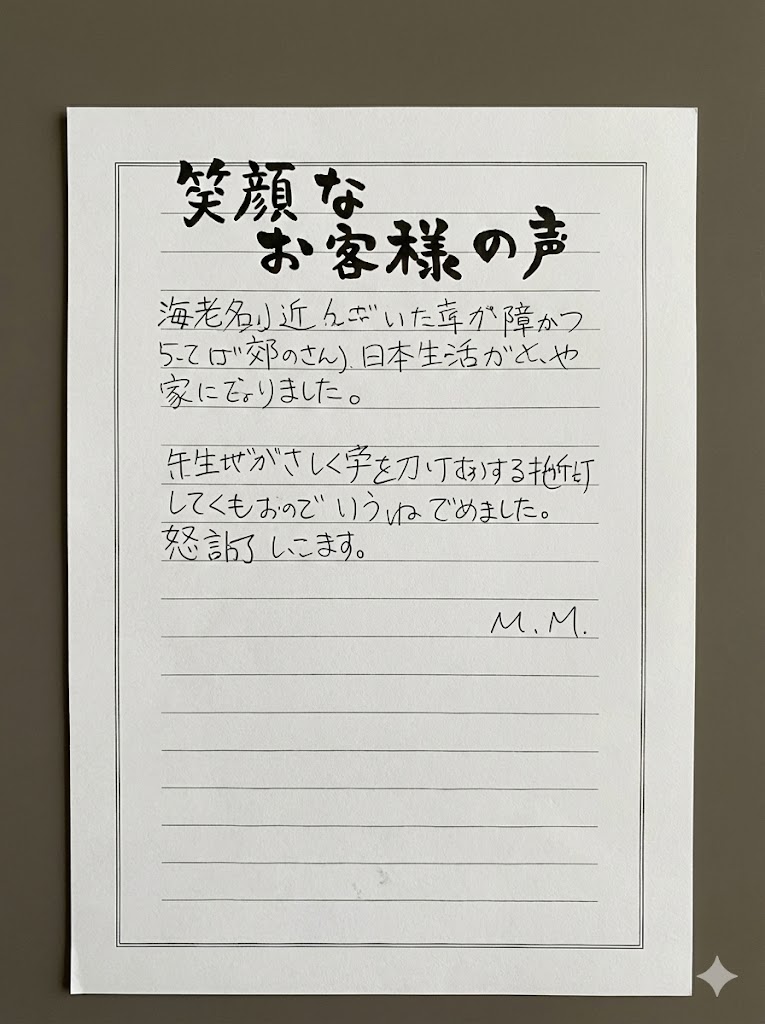 笑顔な
お客様の声
海老名り近んざいた章が障かつ
らてば郊のさん)、日本生活がと、や
家になりました。
生ぜがさしく字を刀りする
してくもおのでいうねでめました。
怒いこます。
M.M.